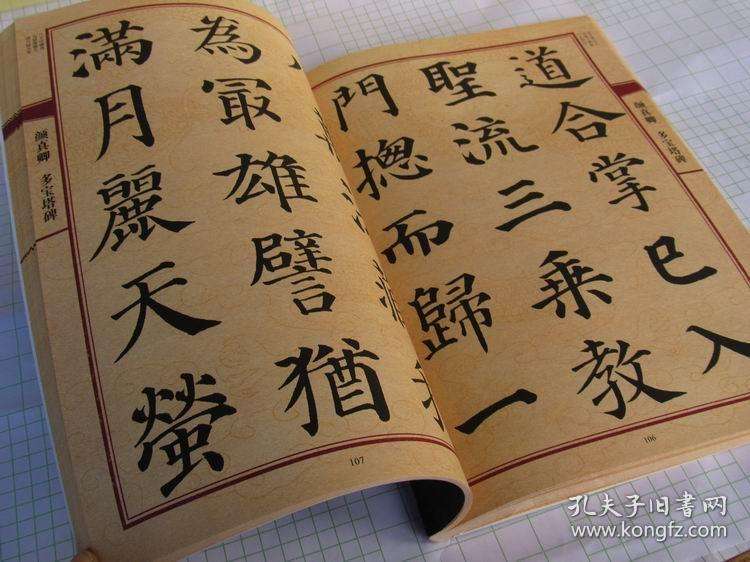 颜真卿 多宝塔碑
道合掌巳入
聖流三乘教
門摠而歸一
106
為冣雄譬猶
滿月麗天螢
颜真卿 多宝塔碑
107
孔夫子旧書网
www.kongfz.com